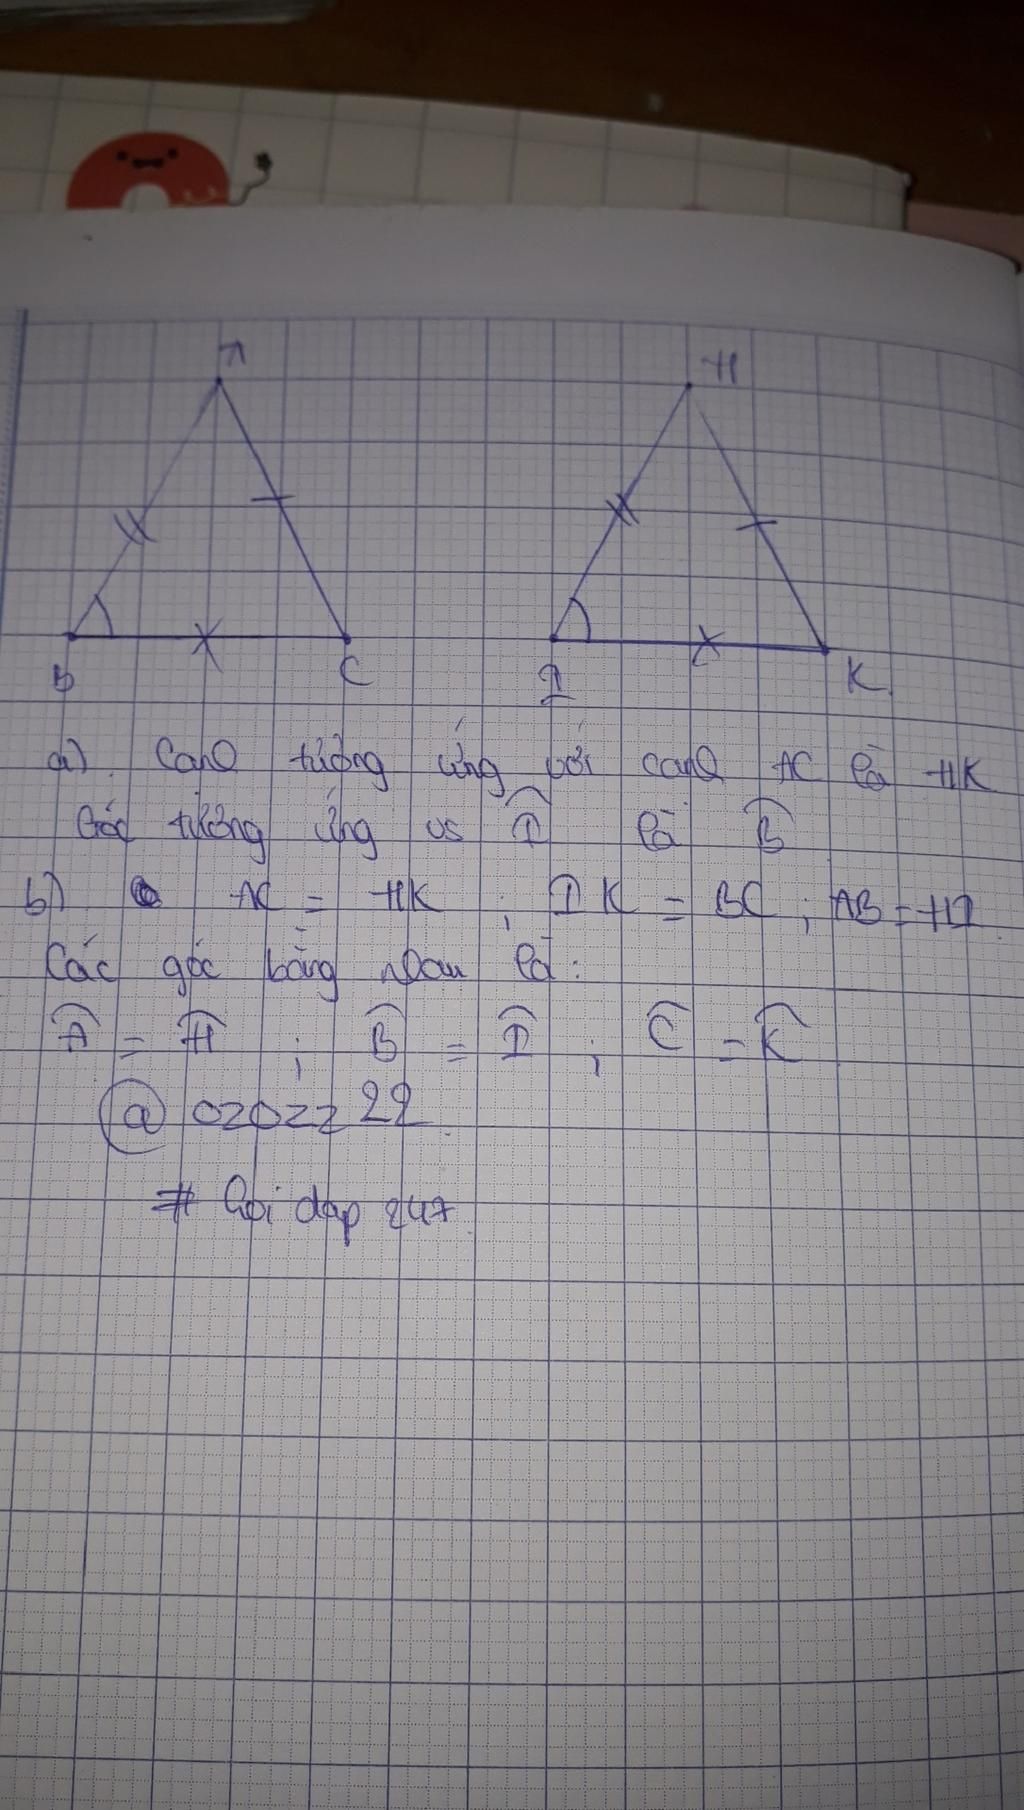 A H
B C I K
a) Cạnh tương ứng với cạnh AC là HK
Góc tương ứng vs Î là B̂
b) AC = HK ; IK = BC ; AB = HI
Các góc bằng nhau là:
Â = Ĥ ; B̂ = Î ; Ĉ = K̂
@ 0202222
# hoi dap 247